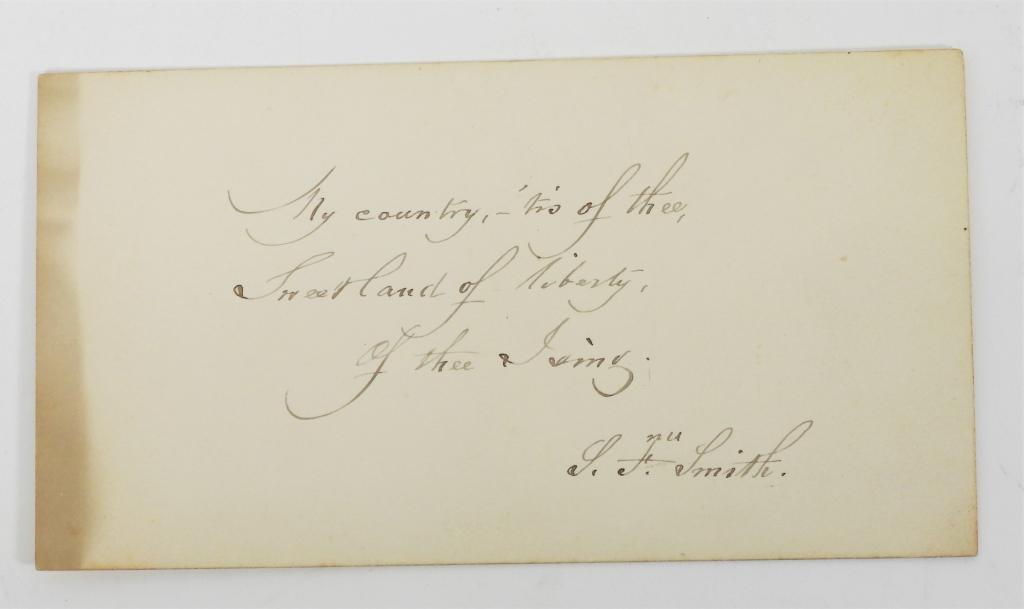 My country, - 'tis of thee,
Sweet land of liberty,
Of thee I sing.
S. F. Smith.